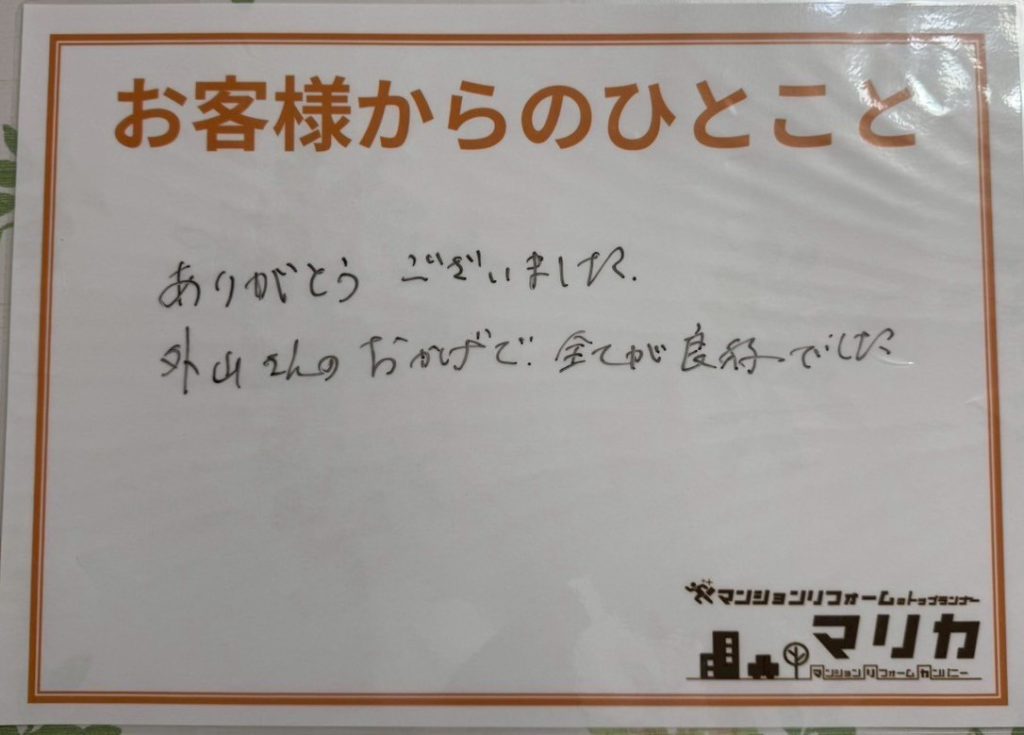 お客様からのひとこと
ありがとう ございました.
外山さんのおかげで. 全てが良好でした
マンションリフォームのトップランナー
マリカ
マンションリフォームカンパニー